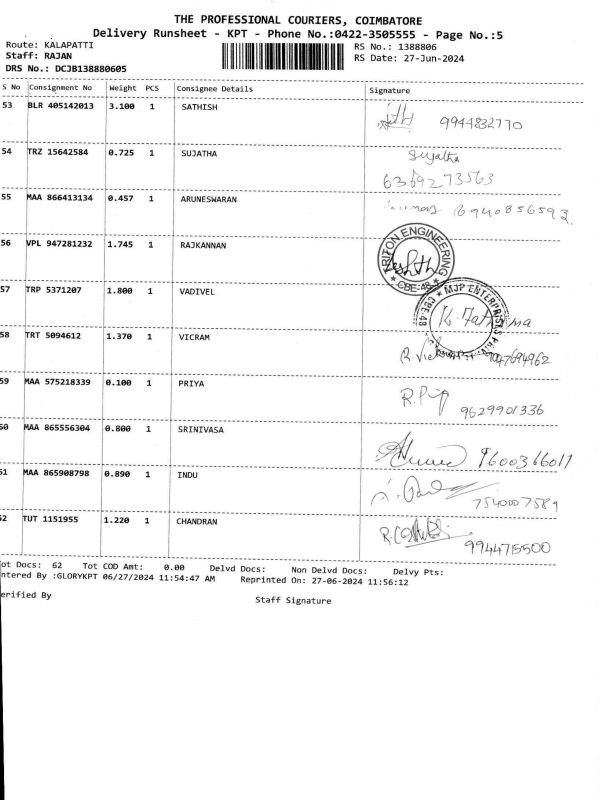 THE PROFESSIONAL COURIERS, COIMBATORE
Delivery Runsheet - KPT - Phone No.:0422-3505555 - Page No.:5
Route: KALAPATTI
Staff: RAJAN
DRS No.: DCJB138880605
RS No.: 1388806
RS Date: 27-Jun-2024
S No Consignment No Weight PCS Consignee Details Signature
53 BLR 405142013 3.100 1 SATHISH
9944832770
54 TRZ 15642584 0.725 1 SUJATHA Sujatha
6369273563
55 MAA 866413134 0.457 1 ARUNESWARAN 6940856593
56 VPL 947281232 1.745 1 RAJKANNAN
ARITON ENGINEERING
* CBE-48 *
57 TRP 5371207 1.800 1 VADIVEL
* MJP ENTERPRISES
CBE-48
58 TRT 5094612 1.370 1 VICRAM
59 MAA 575218339 0.100 1 PRIYA
9629901336
60 MAA 865556304 0.800 1 SRINIVASA
9600366017
61 MAA 865908798 0.890 1 INDU
7540007589
62 TUT 1151955 1.220 1 CHANDRAN
9944715500
ot Docs: 62 Tot COD Amt: 0.00 Delvd Docs: Non Delvd Docs: Delvy Pts:
ntered By :GLORYKPT 06/27/2024 11:54:47 AM Reprinted On: 27-06-2024 11:56:12
erified By Staff Signature